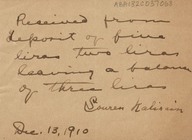 Received from
deposit of five
liras two liras
leaving a balance
of three liras
Dec. 13, 1910